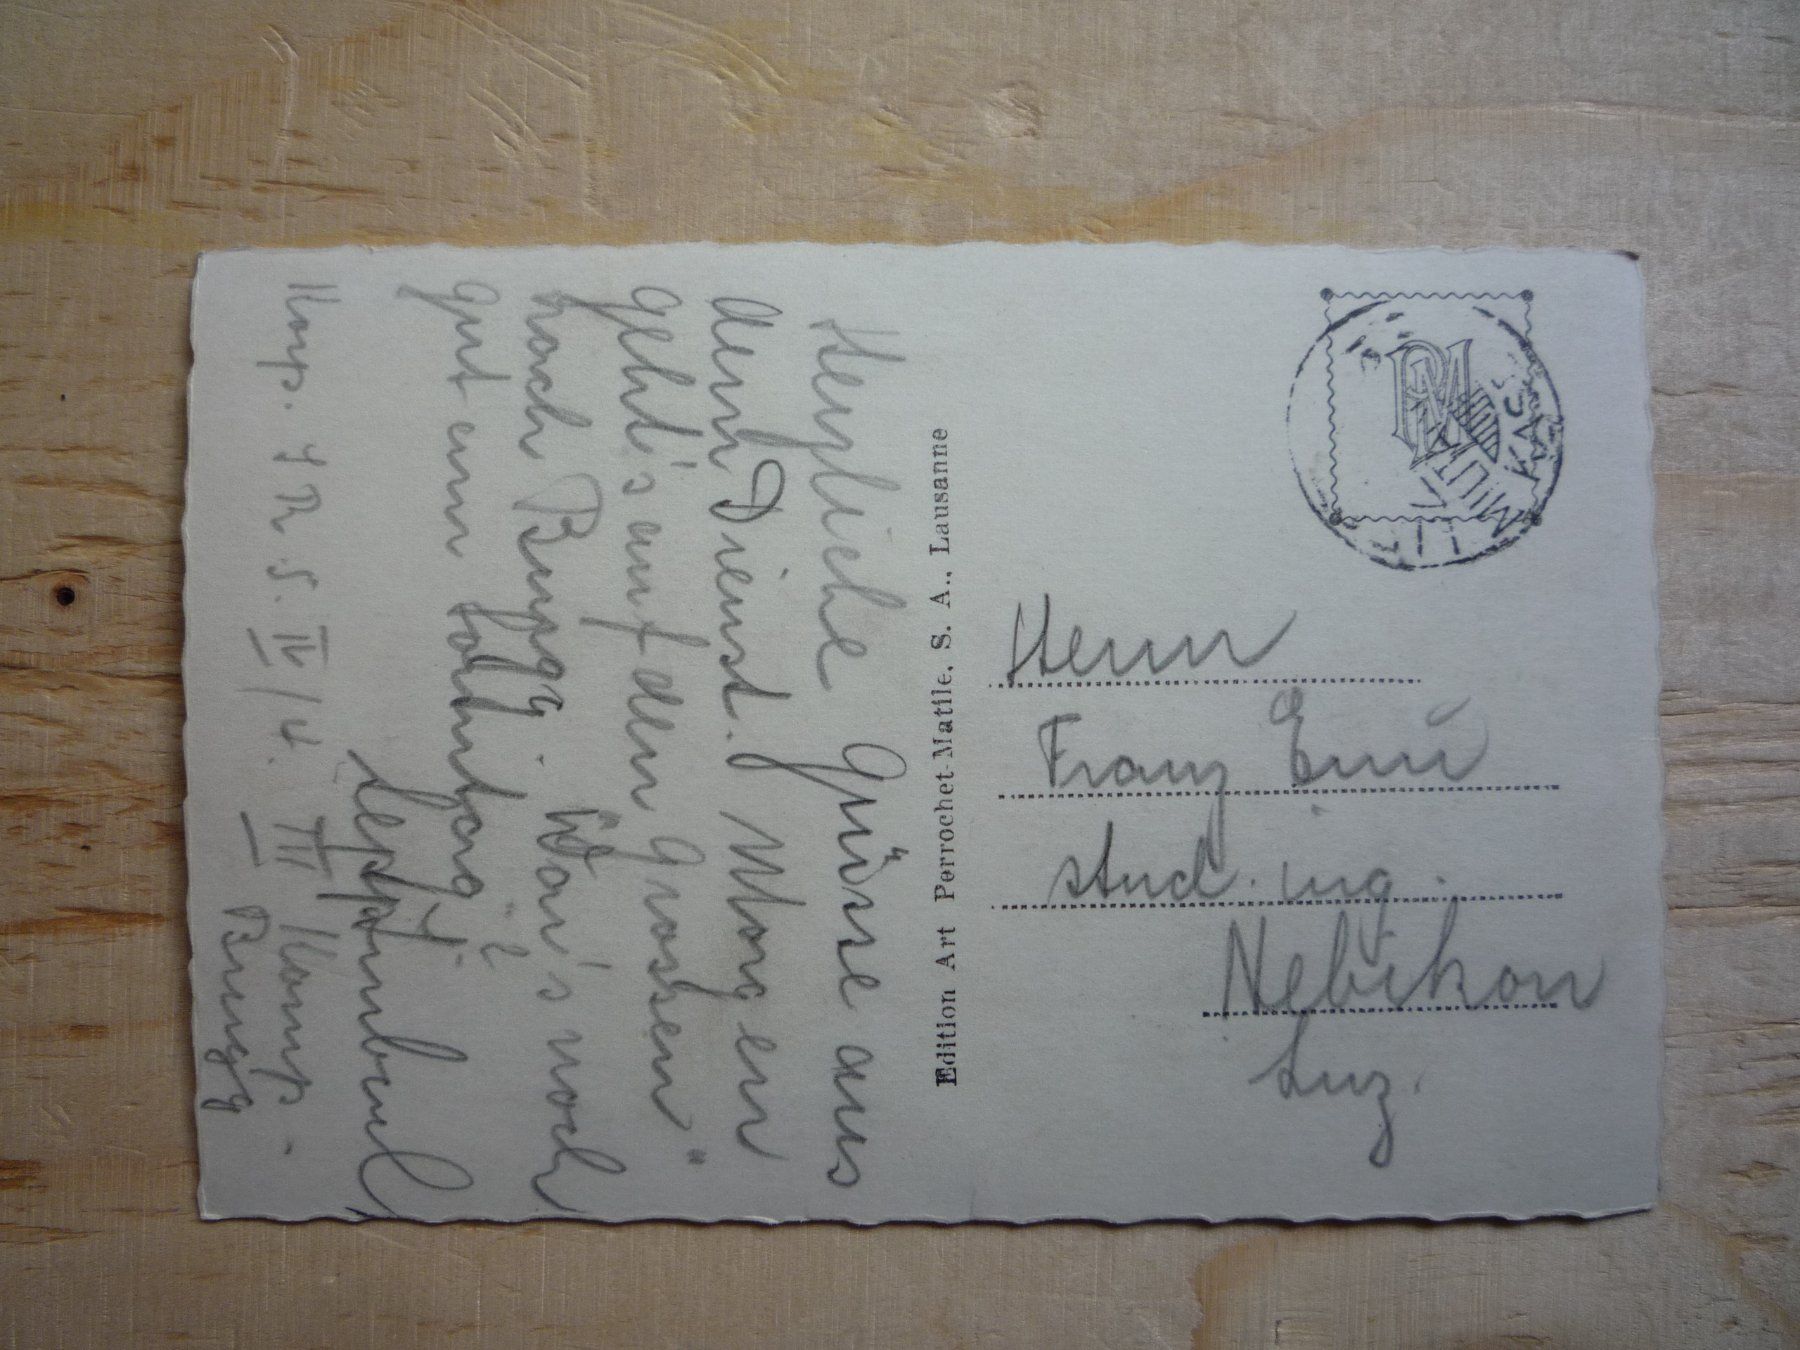 Herzliche Grüsse aus
dem Dienst. Morgen
geht's auf den "Grossen"
nach Brugg. War's noch
gut am Samstag?
Korp. I R S. II/4. III Komp.
Brugg
Edition Art Perrochet-Matile, S. A., Lausanne
PM
MILIT
KASE
Herrn
Franz
stud. ing.
Nebikon
Luz.